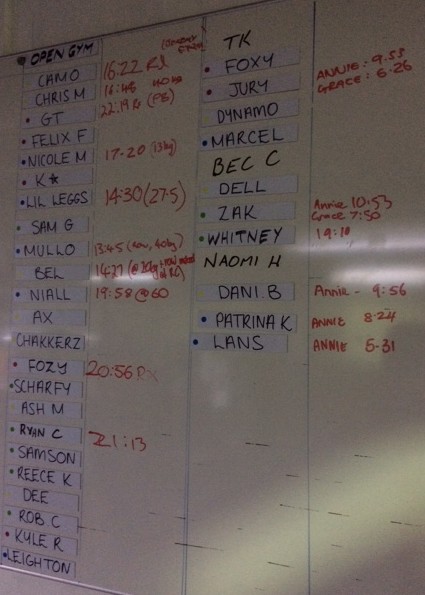 OPEN GYM
CAMO 16:22 Rx
CHRIS M 16:46
GT 22:19 Rx (PB)
FELIX F
NICOLE M 17-20 (13kg)
K*
LIL LEGGS 14:30 (27.5)
SAM G
MULLO 13:45 (row, 40kg)
BEL 14:27
NIALL 19:58 @ 60
AX
CHAKKERZ
FOZY 20:56 RX
SCHARFY
ASH M
RYAN C 21:13
SAMSON
REECE K
DEE
ROB C
KYLE R
LEIGHTON
TK
FOXY ANNIE - 9.55
JURY GRACE : 6-26
DYNAMO
MARCEL
BEC C
DELL
ZAK Annie 10.53
Grace 7:50
WHITNEY 19:10
NAOMI H
DANI.B Annie - 9:56
PATRINA K ANNIE 8-24
LANS ANNIE 5-31